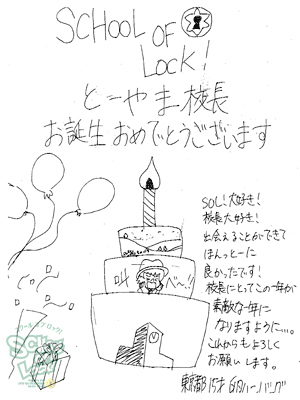 SCHOOL OF
LOCK!
とーやま校長
お誕生おめでとうございます
SOL!大好き!
校長大好き!
出会えることができて
ほんっとーに
良かったです!
校長にとってこの一年が
素敵な一年に
なりますように…。
これからもよろしく
お願いします。
叫べ~!!
東京都 15才